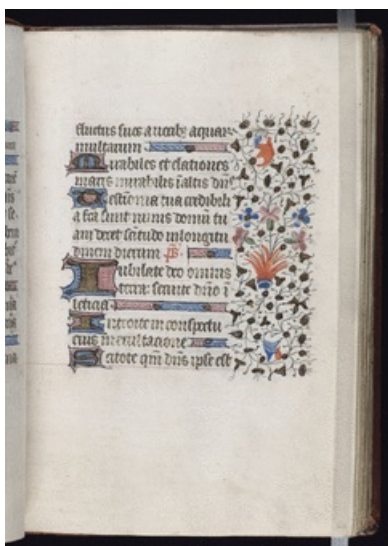 fluctus suos a vocib; aquar
multarum
Mirabiles et elationes
maris mirabilis ĩ altis dñs
Testimonia tua credibili
a fca sunt nimis domũ tu
am decet sc̃itudo in longitu
dinem dierum p̃s
Iubilate deo omnis
terra: servite dño ĩ
leticia
Introite in conspectu
eius in exultacione
Scitote qm̃ dñs ipse est